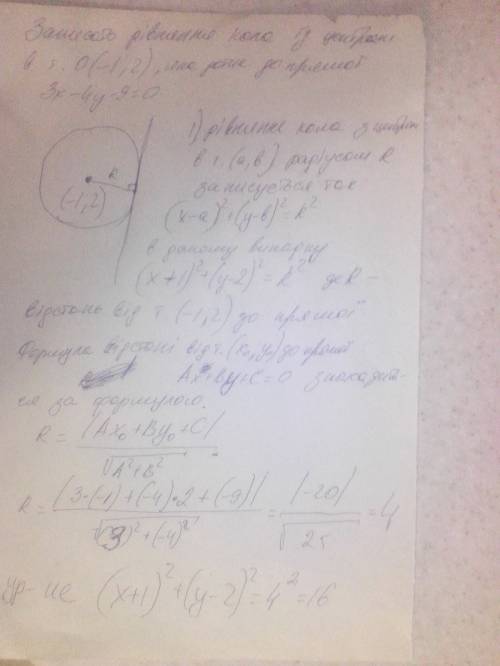 Записать рівняння кола із центром
в т. О(-1,2), яка дотик до прямої
3x-4y-9=0
1) рівняння кола з центром
в т. (a,b) радіусом R
записується так
(x-a)²+(y-b)²=R²
в даному випадку
(x+1)²+(y-2)²=R² де R-
відстань від т. (-1,2) до прямої
R
(-1,2)
Формула відстані від т. (x₀,y₀) до прямої
Ax+By+C=0 знаходит-
ся за формулою.
R = |Ax₀+By₀+C| / √A²+B² .
R = |3·(-1)+(-4)·2+(-9)| / √(3)²+(-4)² = |-20| / √25 = 4
ур-ие (x+1)²+(y-2)²=4²=16